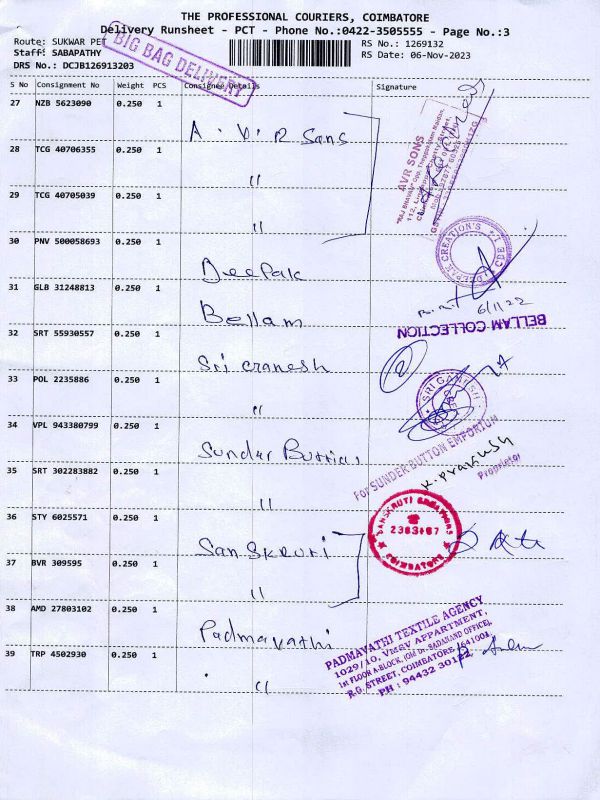 THE PROFESSIONAL COURIERS, COIMBATORE
Delivery Runsheet - PCT - Phone No.:0422-3505555 - Page No.:3
Route: SUKWAR PET
RS No.: 1269132
Staff: SABAPATHY
RS Date: 06-Nov-2023
DRS No.: DCJB126913203
BIG BAG DELIVERY
S No Consignment No Weight PCS Consignee Details Signature
27 NZB 5623090 0.250 1
A.V.R Sons
AVR SONS
28 TCG 40706355 0.250 1
"
29 TCG 40705039 0.250 1
"
30 PNV 500058693 0.250 1
Deepak
DEEPAK CREATION'S
CBE-1
31 GLB 31248813 0.250 1
Bellam
6/11/22
BELLAM COLLECTION
32 SRT 55930557 0.250 1
Sri Granesh
2
SRI GANESH
33 POL 2235886 0.250 1
"
34 VPL 943380799 0.250 1
Sunder Button
For SUNDER BUTTON EMPORIUM
K. Prakash
Proprietor
35 SRT 302283882 0.250 1
"
36 STY 6025571 0.250 1
Sanskruri
SANSKRUTI CREATIONS
COIMBATORE
37 BVR 309595 0.250 1
"
38 AMD 27803102 0.250 1
Padmavathi
PADMAVATHI TEXTILE AGENCY
1029/10, VMSV APPARTMENT,
1st FLOOR A-BLOCK, (Old Dr. SADANAND OFFICE),
R.G. STREET, COIMBATORE - 641001.
PH : 94432 30122
39 TRP 4502930 0.250 1
"